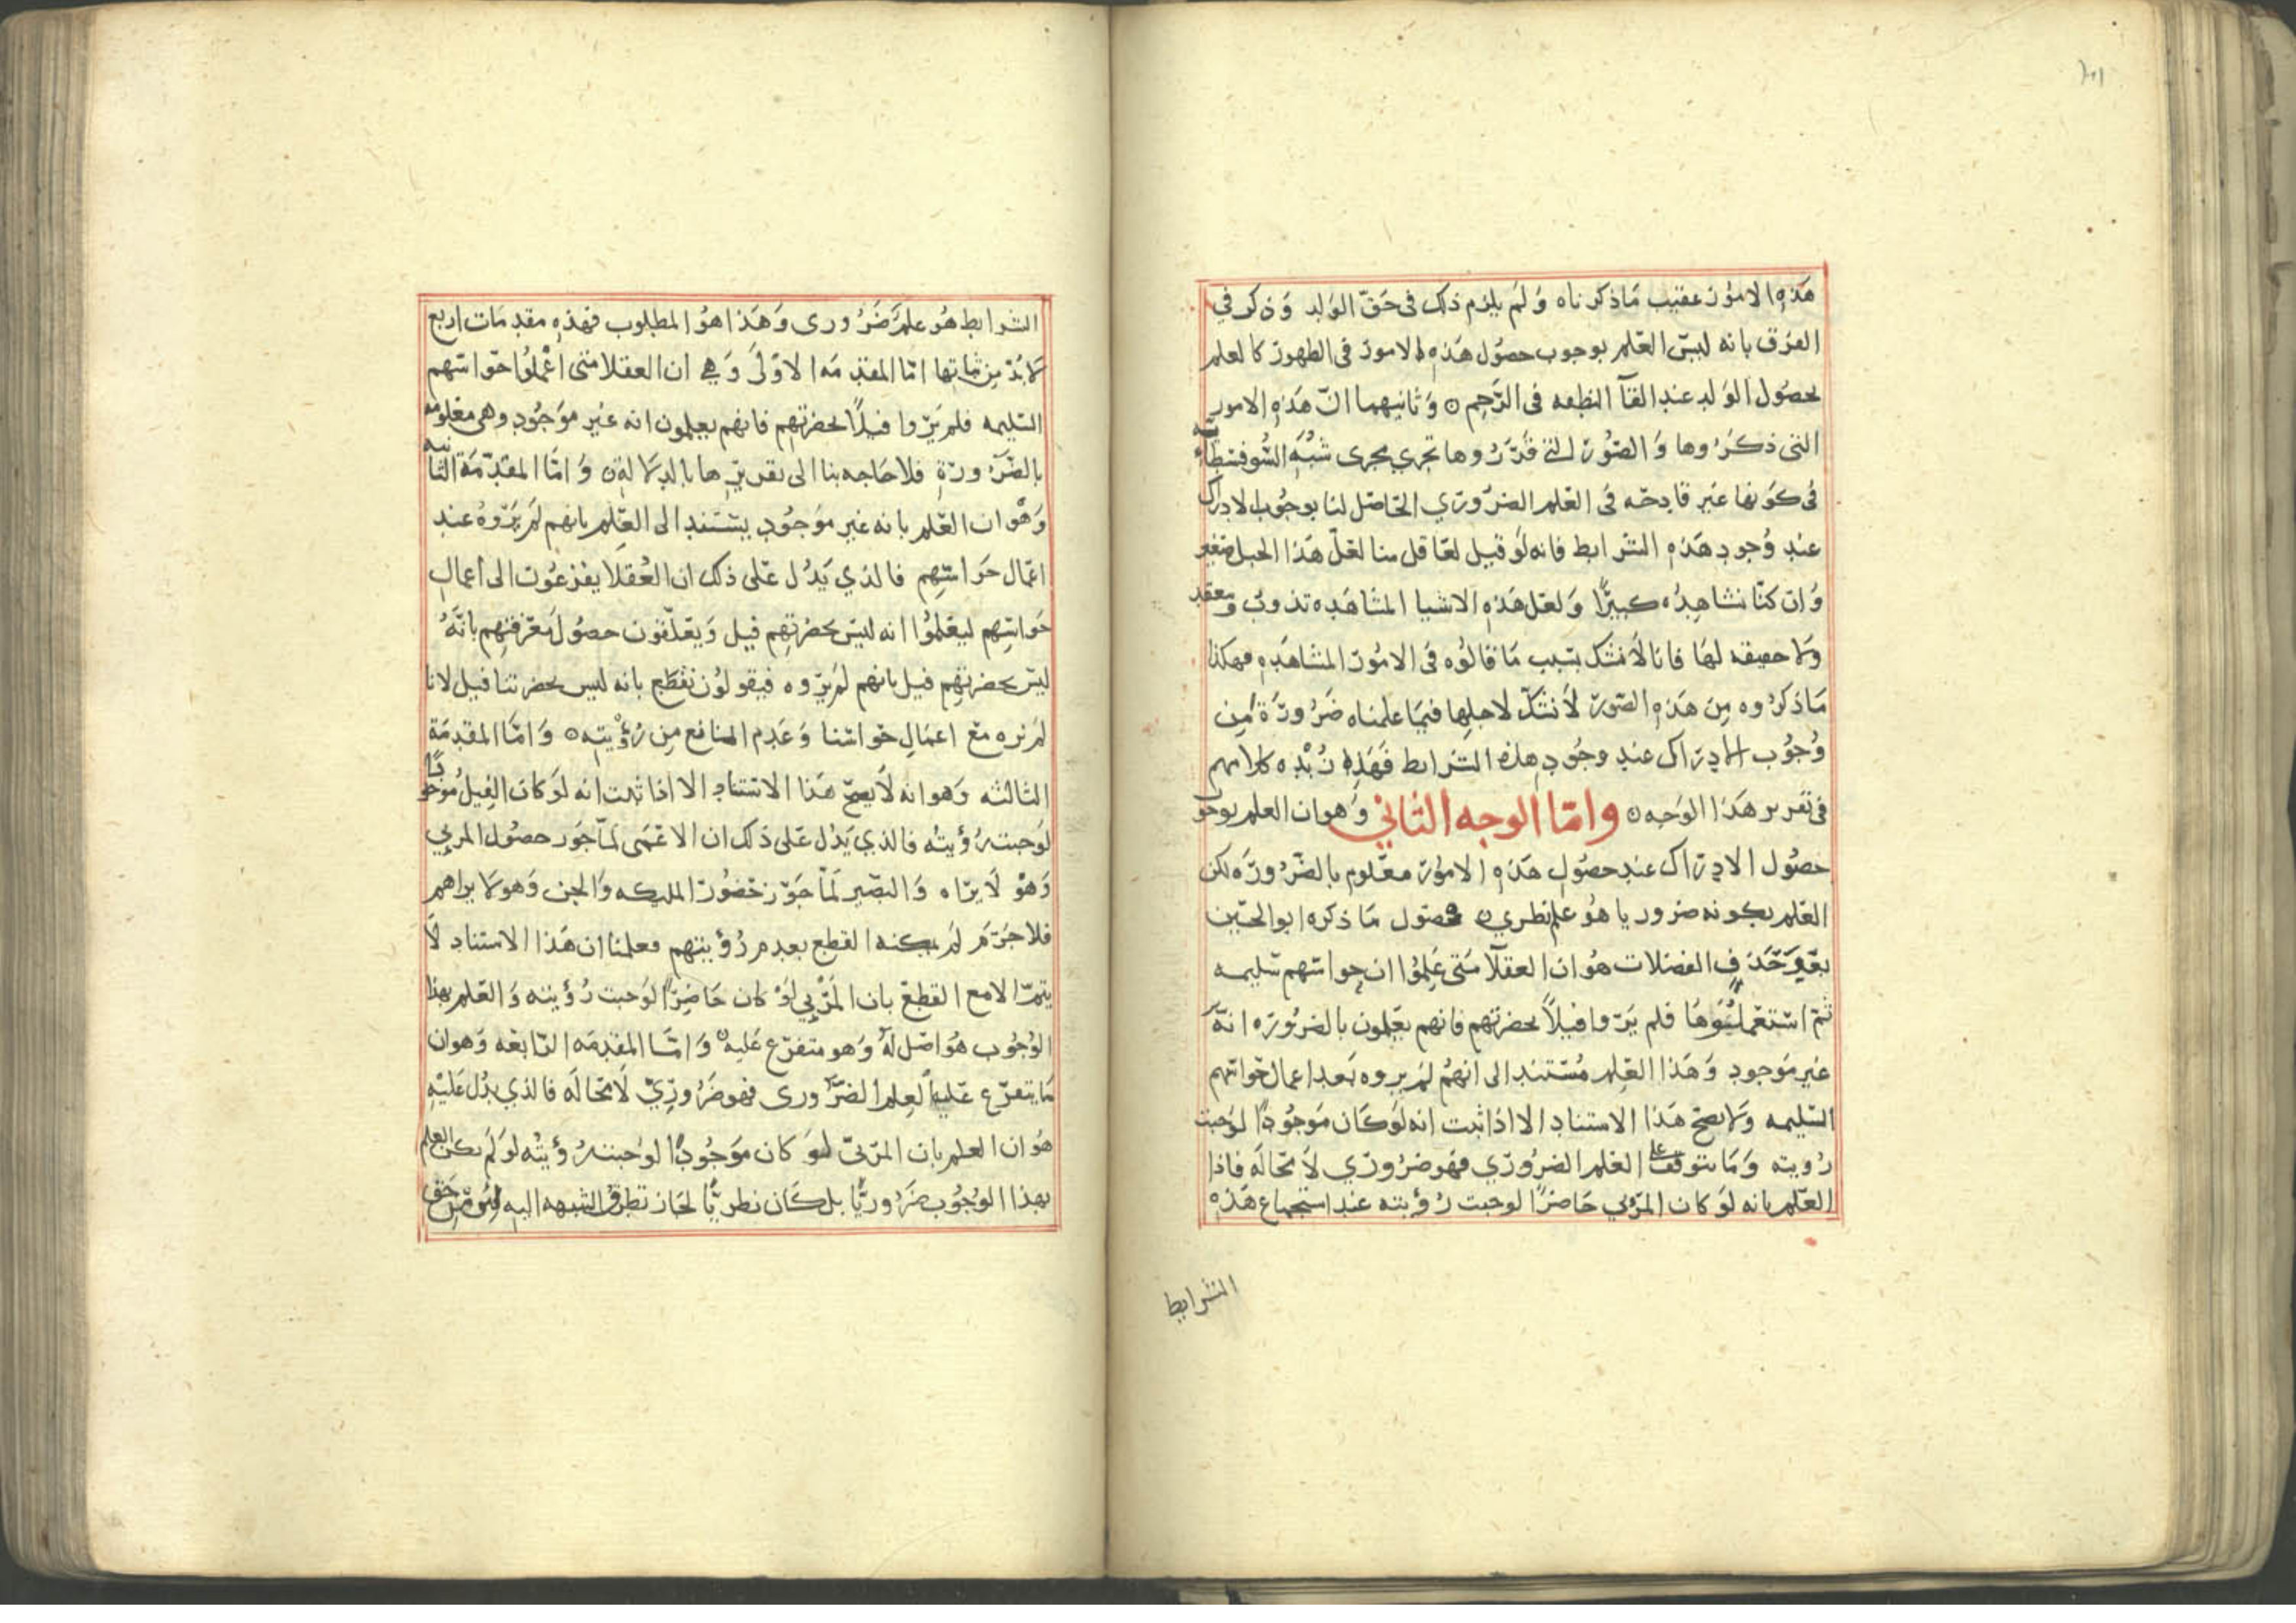 هَذِهِ الامُور عقيب مَاذكرناه وَلَم يلزم ذلك فى حَقّ الوَلد وَذكر في
الفرق بانه ليسَ العِلم بوجوب حصُول هَذِه الامور فى الظهور كالعلم
بحصُول الوَلد عند القآ النطفه فى الرَّحِم ٥ وَثانيهما انّ هَذِهِ الامور
التى ذكرُوها وَالصُوَر التى قدّرُوها تجري مجرى شُبَهِ السُّوفسطَائيه
فى كوَنها غَير قادحه فى العِلم الضرُوري الحاصل لنا بوجُوب الادراك
عند وُجودِ هَذِهِ الشرايط فانه لَو قيل لعَاقل منا لعَلّ هَذا الجبل صغير
وَان كنّا نشاهِدُه كبيرًا وَلعَل هَذِهِ الاشيا المشاهَده تذوبُ وَتنعقد
وَلا حقيقه لهَا فانا لاَنشك بسَبب مَا قالُوه فى الامُور المشاهَدِه فهكذا
مَاذكرُوه مِن هَذِهِ الصُور لاَنشكّ لاجلِها فيمَا علمناه ضَرُورَةً مِن
وُجُوب الادرَاك عند وجُودِ هذه الشرايط فَهَذِهِ زُبْدَه كلامهم
فى تقرير هَذا الوَجه ٥ وامّا الوجه الثاني وَهوان العلم بوجوب
حصُول الادرَاك عند حصُولِ هَذِهِ الامُور معَلوم بالضَّرُورَه لكن
العِلم بكونه ضروريا هُو علم نظرى ٥ فحصُول مَا ذكره ابو الحسَين
بعَد حَذف الفضلات هُوان العقلآ مَتى عَلِمُوا ان حواسّهم سَليمه
ثمّ استعملُوهَا فلم يَرَوا فيلاً بحضرتهم فانهم يعَلمون بالضرُورَه انهُ
غير مَوجودٍ وَهَذا العِلم مُستَند الى انهُم لم يروه بَعد اعمال حَواسّهم
السَّليمه وَلا يصح هَذا الاستناد الا اذا ثبت انه لَوكَان مَوجُودًا لوَجبت
رُويته وَمَا يتوقف عليه العِلم الضرُورِي فهو ضرُورِي لاَ محَالَه فاذا
العِلم بانه لَو كان المرئي حَاضرًا لوجبت رُؤيته عند استجماع هَذِه
الشرايط
الشرايط هُو علم ضَرُورى وَهَذا هوُ المطلوب فهَذِهِ مقدمَات اربع
لابُدّ مِن ثباتها امّا المقدمَه الاوْلَى وَهِي ان العقلا متى اعْملُوا حَواسّهم
السَّليمه فلم يَرَوا فيلًا بحضرتهِم فانهم يعلمون انه غير مَوجُودٍ وهى معلومه
بالضّرُورةِ فلاحَاجه بنا الى تقريرِها بالدلالةِ ٥ وَامَّا المقدّمَة الثانيه
وَهْوان العِلم بانه غير موَجُودٍ يستَند الى العِلم بانهم لَم يَرَوهُ عند
اعمَال حَوَاسّهِم فالذي يَدُل عَلى ذلك ان العُقلا يفزعُون الى اعمالِ
حَوَاسّهم ليعَلمُوا انه ليسَ بحضرتهم فيل وَيعَلّقون حصُول مَعرفتِهِم بانَّهُ
ليسَ بحضرتهِم فيل بانهم لَم يَرَوه فيقولوُن نقطَع بانه ليس بحضرتنا فيل لانا
لَم نره مَعَ اعمَالِ حوَاسّنا وَعَدم المانع مِن رُؤْيته ٥ وَامَّا المقدمَة
الثالثه وَهوانه لاَ يصحّ هَذا الاستناد الا اذا ثبت انه لَوكان الفِيلُ مَوجُودًا
لوَجبت رُؤيتُه فالذي يَدُل عَلى ذلك ان الاعْمَى لمّا جَوّز حصُول المرئي
وَهْوَ لاَ يرَاه وَالبصَير لمّا جَوّز حُضُورَ المليكه وَالجن وَهو لا يراهم
فلا جرَم لم يمكنه القطع بعدم رُؤيتهم فعلمنا ان هَذا الاستناد لاَ
يتمّ الا مع القطعِ بان المَرْئِي لَوْ كان حَاضِرًا لوَجبت رُؤيته وَالعِلم بهذا
الوُجُوب هُو اصَل لَهُ وَهو متفرّع عَليه ٥ وَامّا المقدمَه الرَّابعَه وَهوان
مَا يتفرّع عَليه العِلم الضَّرُورى فهو ضَرُورِيّ لاَ محَالَه فالذي يدُل عَليْهِ
هوُان العلم بان المرئىّ لَوكان مَوَجُودًا لوَجبت رُؤيتُه لَو لَم يكن العلم
بهذا الوُجُوب ضَرُوريًّا بل كَان نظريًّا لجَاز تطرق الشبهه اليه